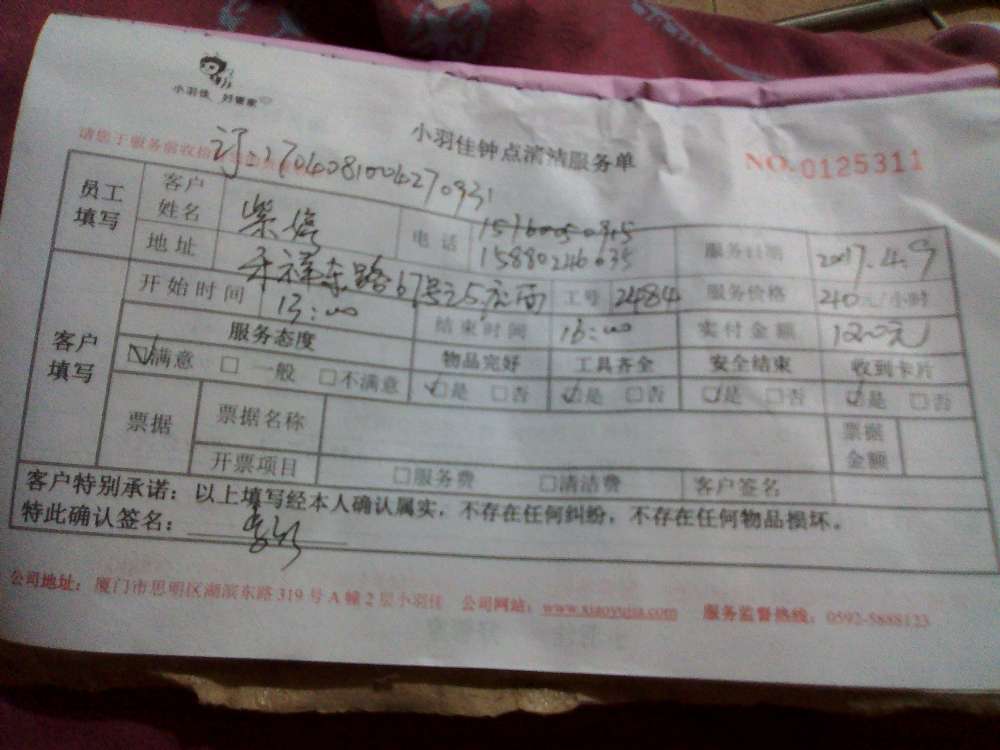 小羽佳 好管家
小羽佳钟点清洁服务单
NO.0125311
请您于服务前收拾
订:1704081004270931
员工填写
客户姓名
电话
15880246035
服务日期 2017.4.9
地址 禾祥东路67号之5店面
工号 2484
服务价格 240元/小时
客户填写
开始时间 13:00
结束时间 16:00
实付金额 120元
服务态度 物品完好 工具齐全 安全结束 收到卡片
☑满意 □一般 □不满意 ☑是 □否 ☑是 □否 ☑是 □否 ☑是 □否
票据 票据名称 票据金额
开票项目 □服务费 □清洁费 客户签名
客户特别承诺：以上填写经本人确认属实，不存在任何纠纷，不存在任何物品损坏。
特此确认签名：
公司地址：厦门市思明区湖滨东路319号A幢2层小羽佳 公司网站：www.xiaoyujia.com 服务监督热线：0592-5888123